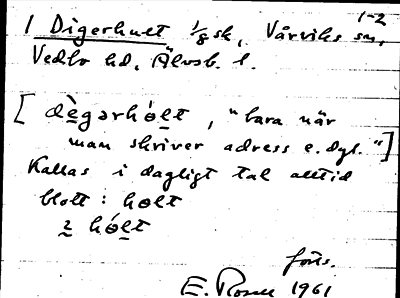 1-2
1 Digerhult 1/8 sk, Vårviks sn,
Vedbo hd, Älvsb. l.
[dègərhó̱lt, "bara när
man skriver adress e.dyl."]
Kallas i dagligt tal alltid
blott: holt
2 hó̱lt
forts.
E. Rosell 1961